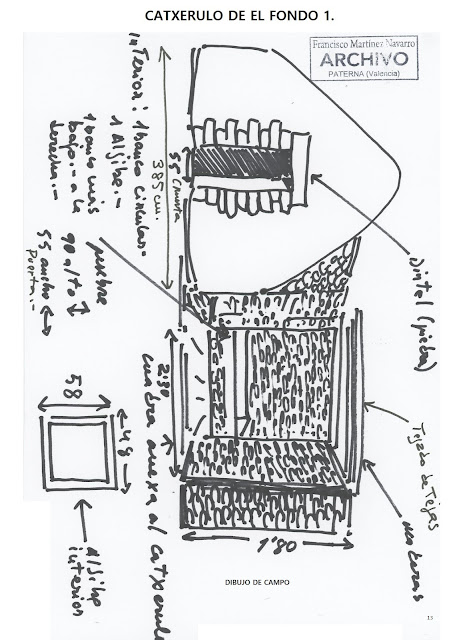 CATXERULO DE EL FONDO 1.
Francisco Martínez Navarro
ARCHIVO
PATERNA (Valencia)
interior: 1 banco circular.-
1 Aljibe.-
1 banco más
bajo.- a la
derecha.-
385 cm.
55
Dintel (piedra)
pesebre
90 alto
55 ancho
Puerta.-
2'30
cuadra anexa al catxerulo
Tejado de Tejas
maderas
1'80
58
48
Aljibe
interior
DIBUJO DE CAMPO
13